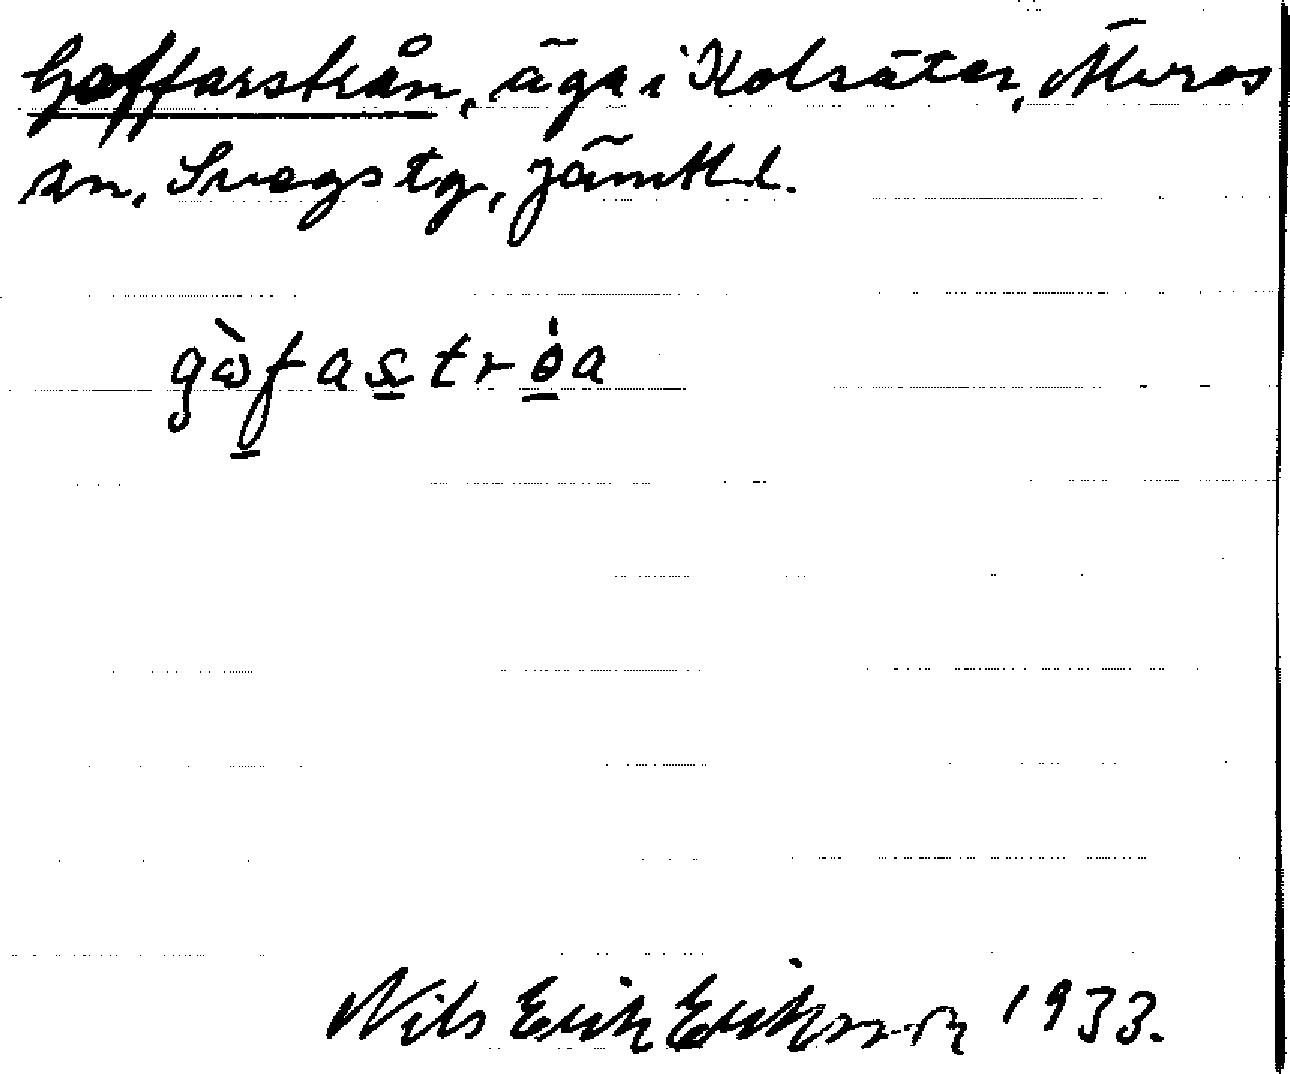 Gaffarstrån, äga i Kolsäter, Älvros
sn, Svegs tg, Jämtl. l.
gὼfastrȯa
Nils Erik Eriksson 1933.